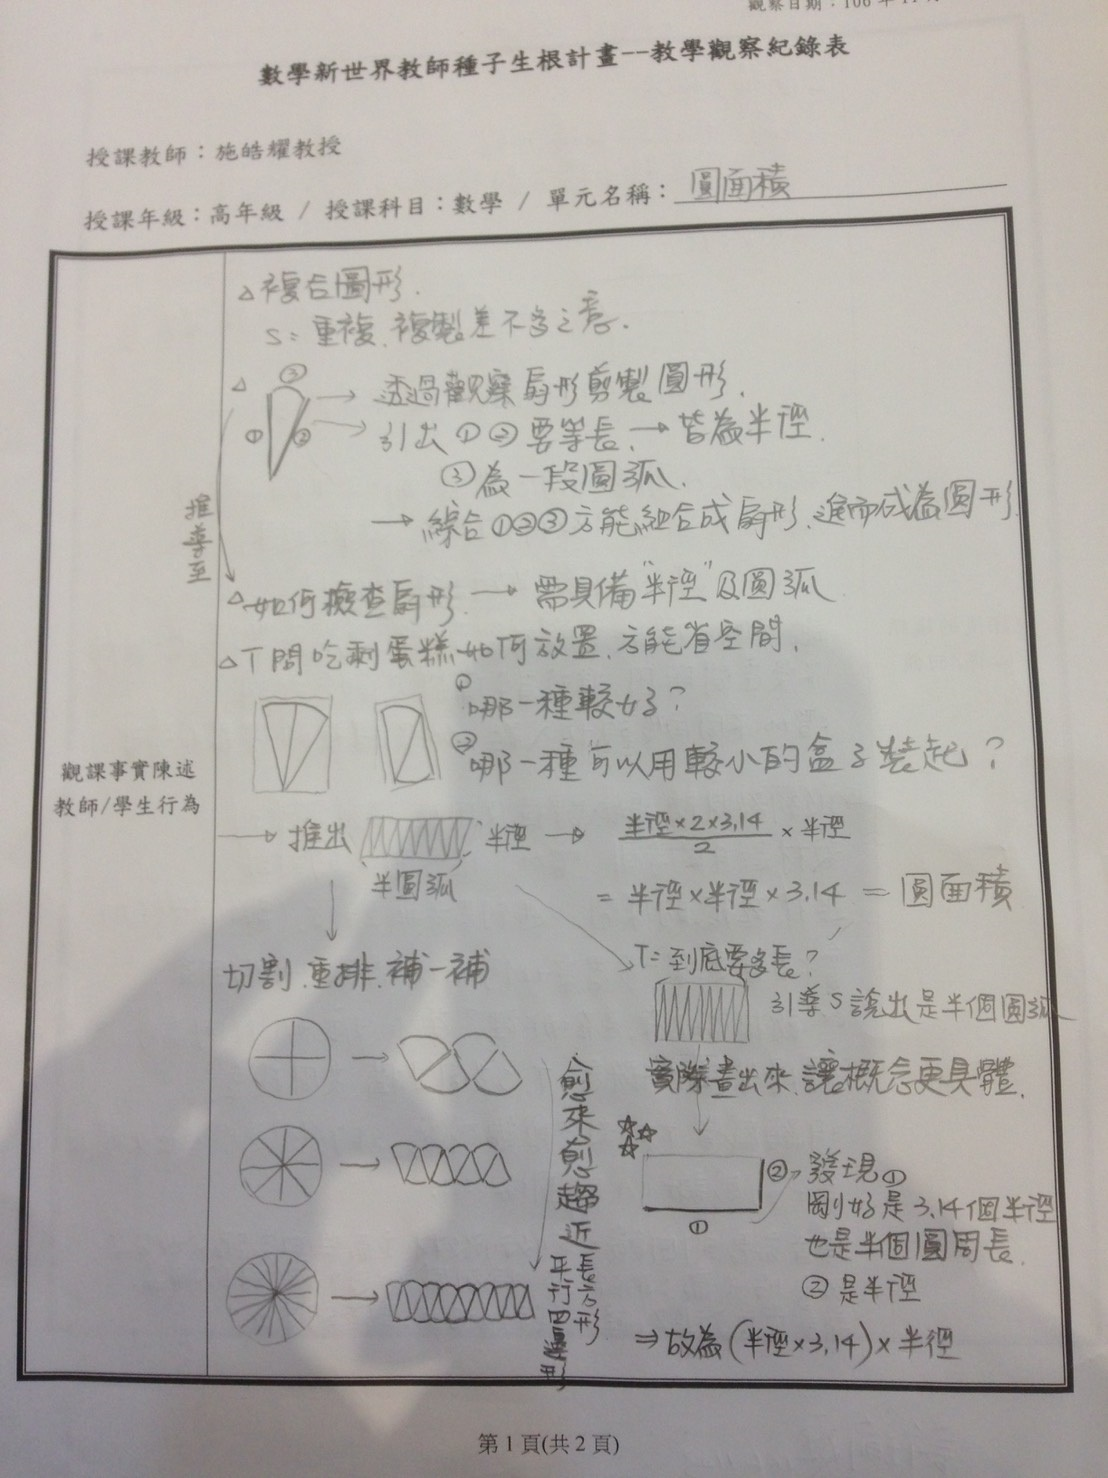 觀察日期：106 年 11 月
數學新世界教師種子生根計畫--教學觀察紀錄表
授課教師：施皓耀教授
授課年級：高年級 / 授課科目：數學 / 單元名稱：圓面積
觀課事實陳述
教師/學生行為
△複合圖形.
S：重複、複製差不多之意.
△ ① ② ③
→ 透過觀察扇形剪製圓形.
→ 引出①②要等長. → 皆為半徑.
③為一段圓弧.
→ 綜合①②③方能組合成扇形、進而成為圓形.
推導至
△如何檢查扇形. → 需具備"半徑"及圓弧
△T問吃剩蛋糕如何放置、方能省空間.
① 哪一種較好？
② 哪一種可以用較小的盒子裝起？
→ 推出 半徑 → 半徑×2×3.14/2 × 半徑
半圓弧
= 半徑×半徑×3.14 = 圓面積
切割.重排.補一補
T=到底要多長？
引導S說出是半個圓弧
實際畫出來.讓概念更具體.
愈來愈趨近
長方形
平行四邊形
① ② 發現①
剛好是3.14個半徑
也是半個圓周長.
② 是半徑
⇒ 故為(半徑×3.14)×半徑
第 1 頁(共 2 頁)